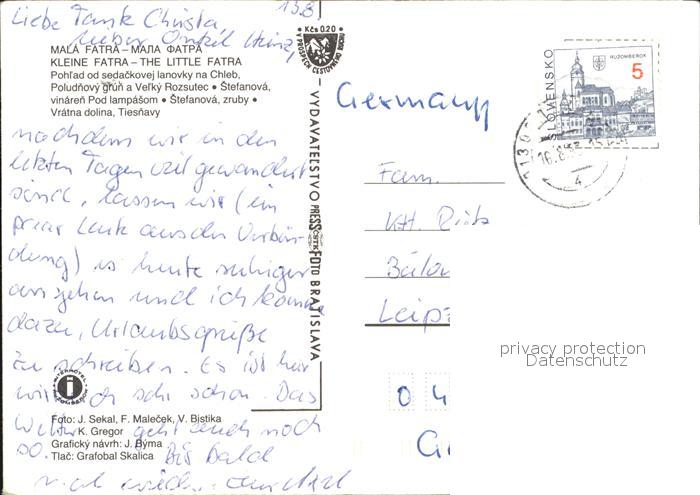 Liebe Tante Christa,
lieber Onkel Heinz,
13.8
MALÁ FATRA – МАЛА ФАТРА
KLEINE FATRA – THE LITTLE FATRA
Pohľad od sedačkovej lanovky na Chleb,
Poludňový grúň a Veľký Rozsutec • Štefanová,
vináreň Pod lampášom • Štefanová, zruby •
Vrátna dolina, Tiesňavy
nachdem wir in den
letzten Tagen viel gewandert
sind, lassen wir (ein
paar Leute aus der
) es heute ruhiger
angehen und ich komme
dazu, Urlaubsgrüße
zu schreiben. Es ist hier
wirklich sehr schön. Das
Wetter geht auch noch
so. Bis bald
Foto: J. Sekal, F. Maleček, V. Bistika
K. Gregor
Grafický návrh: J. Býma
Tlač: Grafobal Skalica
Kčs 0,20
V PROSPECH CESTOVNÉHO RUCHU
VYDAVATEĽSTVO PRESSFOTO BRATISLAVA
ČSTK
INTERHOTEL
SLOVENSKO
RUŽOMBEROK
5
Germany
Fam.
Leipz
0 4
G
privacy protection
Datenschutz